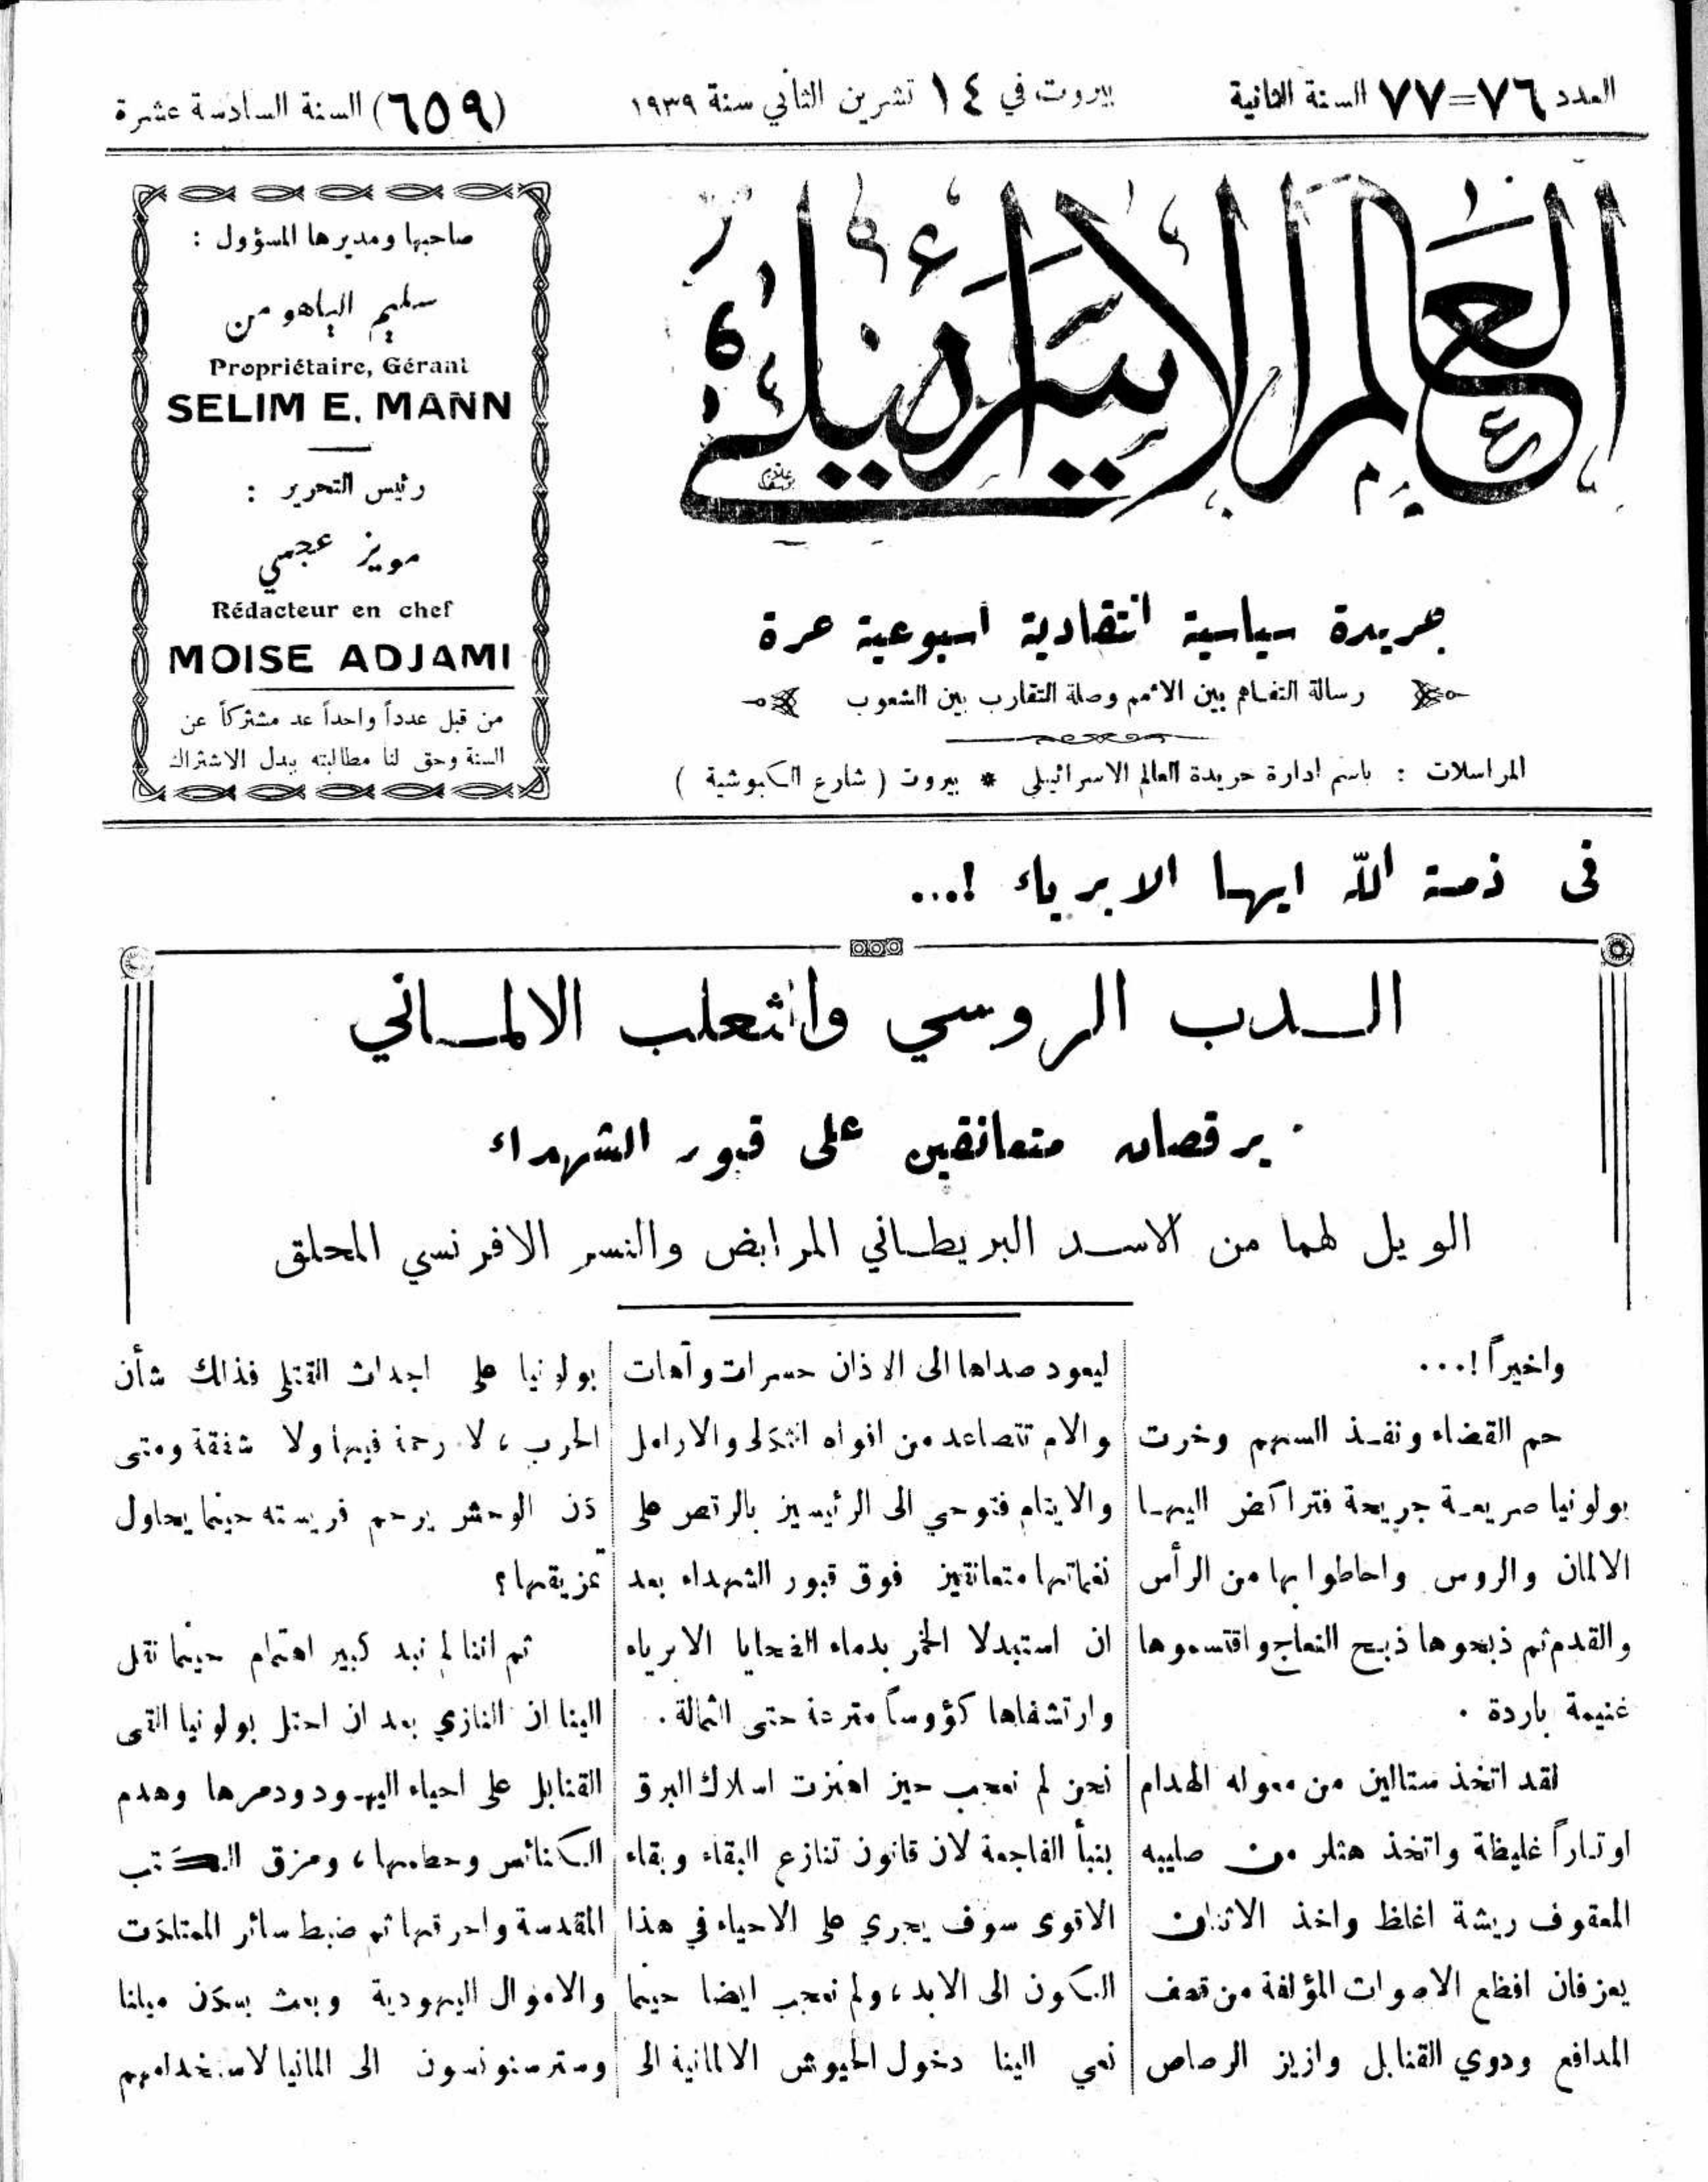 العدد ٧٦=٧٧ السنة الثانية
بيروت في ١٤ تشرين الثاني سنة ١٩٣٩
(٦٥٩) السنة السادسة عشرة
العالم الاسرائيلي
جريدة سياسية انتقادية اسبوعية حرة
رسالة التفاهم بين الأمم وصلة التقارب بين الشعوب
المراسلات : باسم ادارة جريدة العالم الاسرائيلي * بيروت ( شارع الكبوشية )
صاحبها ومديرها المسؤول :
سليم الياهو من
Propriétaire, Gérant
SELIM E. MANN
رئيس التحرير :
مويز عجمي
Rédacteur en chef
MOISE ADJAMI
من قبل عدداً واحداً عد مشتركاً عن
السنة وحق لنا مطالبته ببدل الاشتراك
فى ذمة الله ايها الابرياء !...
الدب الروسي والثعلب الالماني
يرقصان متعانقين على قبور الشهداء
الويل لهما من الاسد البريطاني المرابض والنسر الافرنسي المحلق
واخيراً !...
حم القضاء ونفذ السهم وخرت
بولونيا صريعة جريحة فتراكض اليها
الالمان والروس واحاطوا بها من الرأس
والقدم ثم ذبحوها ذبح النعاج واقتسموها
غنيمة باردة .
لقد اتخذ ستالين من معوله الهدام
اوتاراً غليظة واتخذ هتلر من صليبه
المعقوف ريشة اغلظ واخذ الاثنان
يعزفان افظع الاصوات المؤلفة من قصف
المدافع ودوي القنابل وازيز الرصاص
ليعود صداها الى الاذان حسرات وآهات
والام تتصاعد من افواه الثكلى والارامل
والايتام فتوحي الى الرئيسين بالرقص على
نغماتها متعانقين فوق قبور الشهداء بعد
ان استبدلا الخمر بدماء الضحايا الابرياء
وارتشفاها كؤوساً مترعة حتى الثمالة .
نحن لم نعجب حين اهتزت اسلاك البرق
بنبأ الفاجعة لان قانون تنازع البقاء وبقاء
الاقوى سوف يجري على الاحياء في هذا
الكون الى الابد ، ولم نعجب ايضا حينما
نعي الينا دخول الجيوش الالمانية الى
بولونيا على اجداث القتلى فذلك شأن
الحرب ، لا رحمة فيها ولا شفقة ومتى
كان الوحش يرحم فريسته حينما يحاول
تمزيقها ؟
ثم اننا لم نبد كبير اهتمام حينما نقل
الينا ان النازي بعد ان احتل بولونيا القى
القنابل على احياء اليهود ودمرها وهدم
الكنائس وحطمها ، ومزق الكتب
المقدسة واحرقها ثم ضبط سائر الممتلكات
والاموال اليهودية وبعث بسكان ميلنا
الى المانيا لاستخدامهم